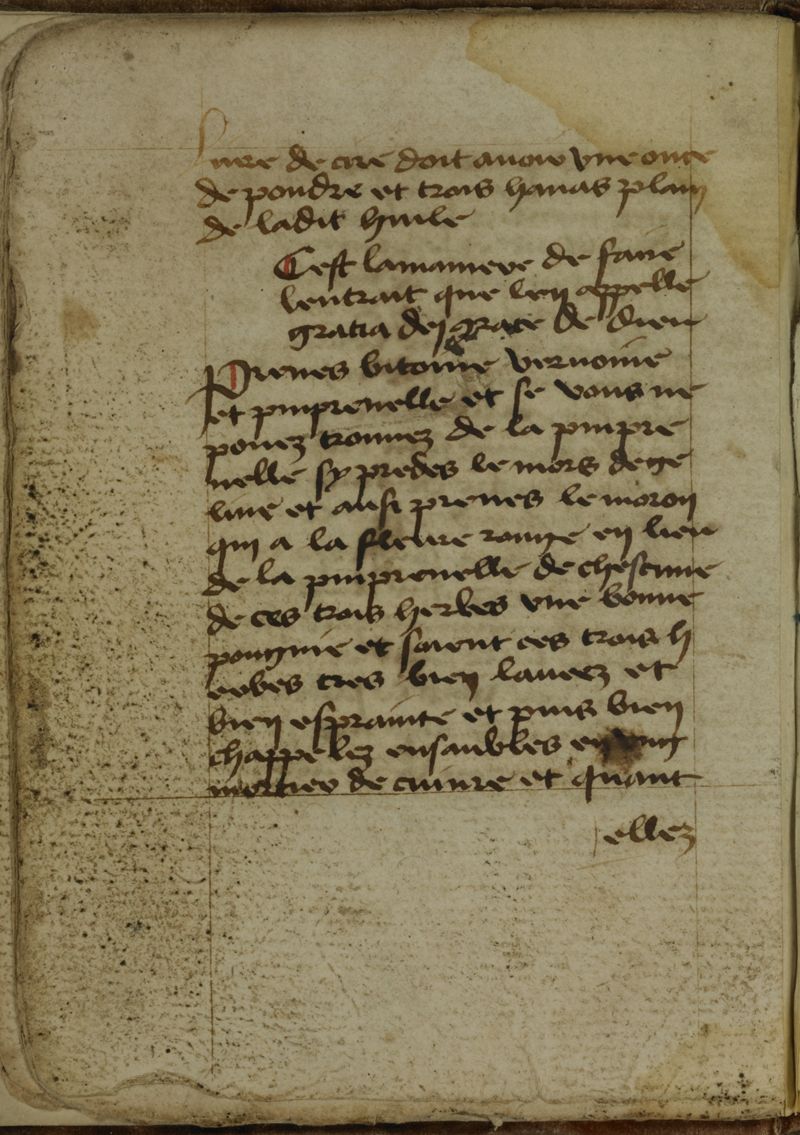 livre de cire doit avoir vne once
de poudre et trois hanas plain
de ladit huile
Cest lamaniere de faire
lentrait que len appelle
gratia dej grace de dieu
Prenes bitoine vervoine
et pinprenelle et se vous ne
pouez trouuez de la pinpre
nelle sy predes le mors dege
line et ausi prenes le moron
qui a la fleure rouge en lieu
de la pinprenelle de chescune
de ces trois herbes vne bonne
pougnie et soient ces trois h
erbes tres bien lauees et
bien esprainte et puis bien
chappelez ensanbles en vng
mortier de cuiure et quant
ellez